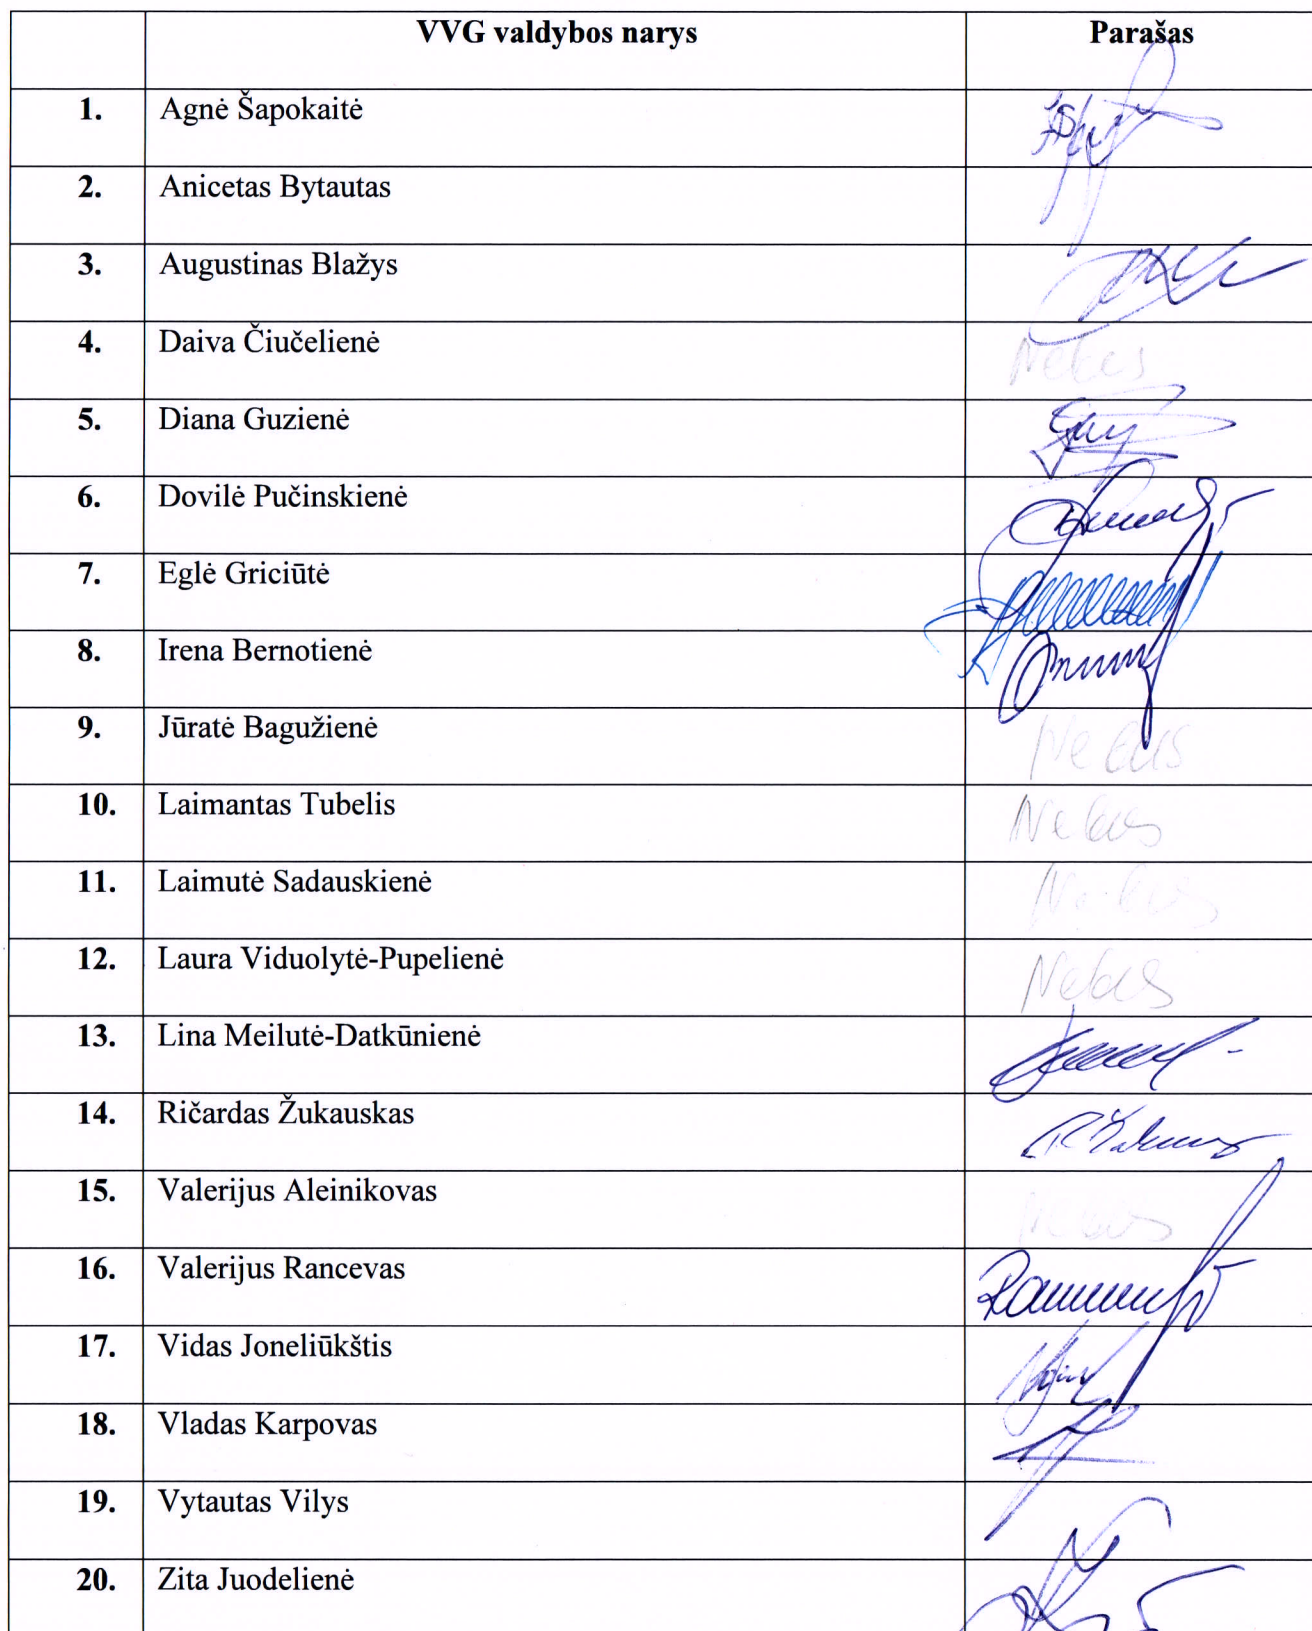 VVG valdybos narys Parašas
1. Agnė Šapokaitė
2. Anicetas Bytautas
3. Augustinas Blažys
4. Daiva Čiučelienė Nebus
5. Diana Guzienė
6. Dovilė Pučinskienė
7. Eglė Griciūtė
8. Irena Bernotienė
9. Jūratė Bagužienė Nebus
10. Laimantas Tubelis Nebus
11. Laimutė Sadauskienė Nebus
12. Laura Viduolytė-Pupelienė Nebus
13. Lina Meilutė-Datkūnienė
14. Ričardas Žukauskas
15. Valerijus Aleinikovas Nebus
16. Valerijus Rancevas
17. Vidas Joneliūkštis
18. Vladas Karpovas
19. Vytautas Vilys
20. Zita Juodelienė